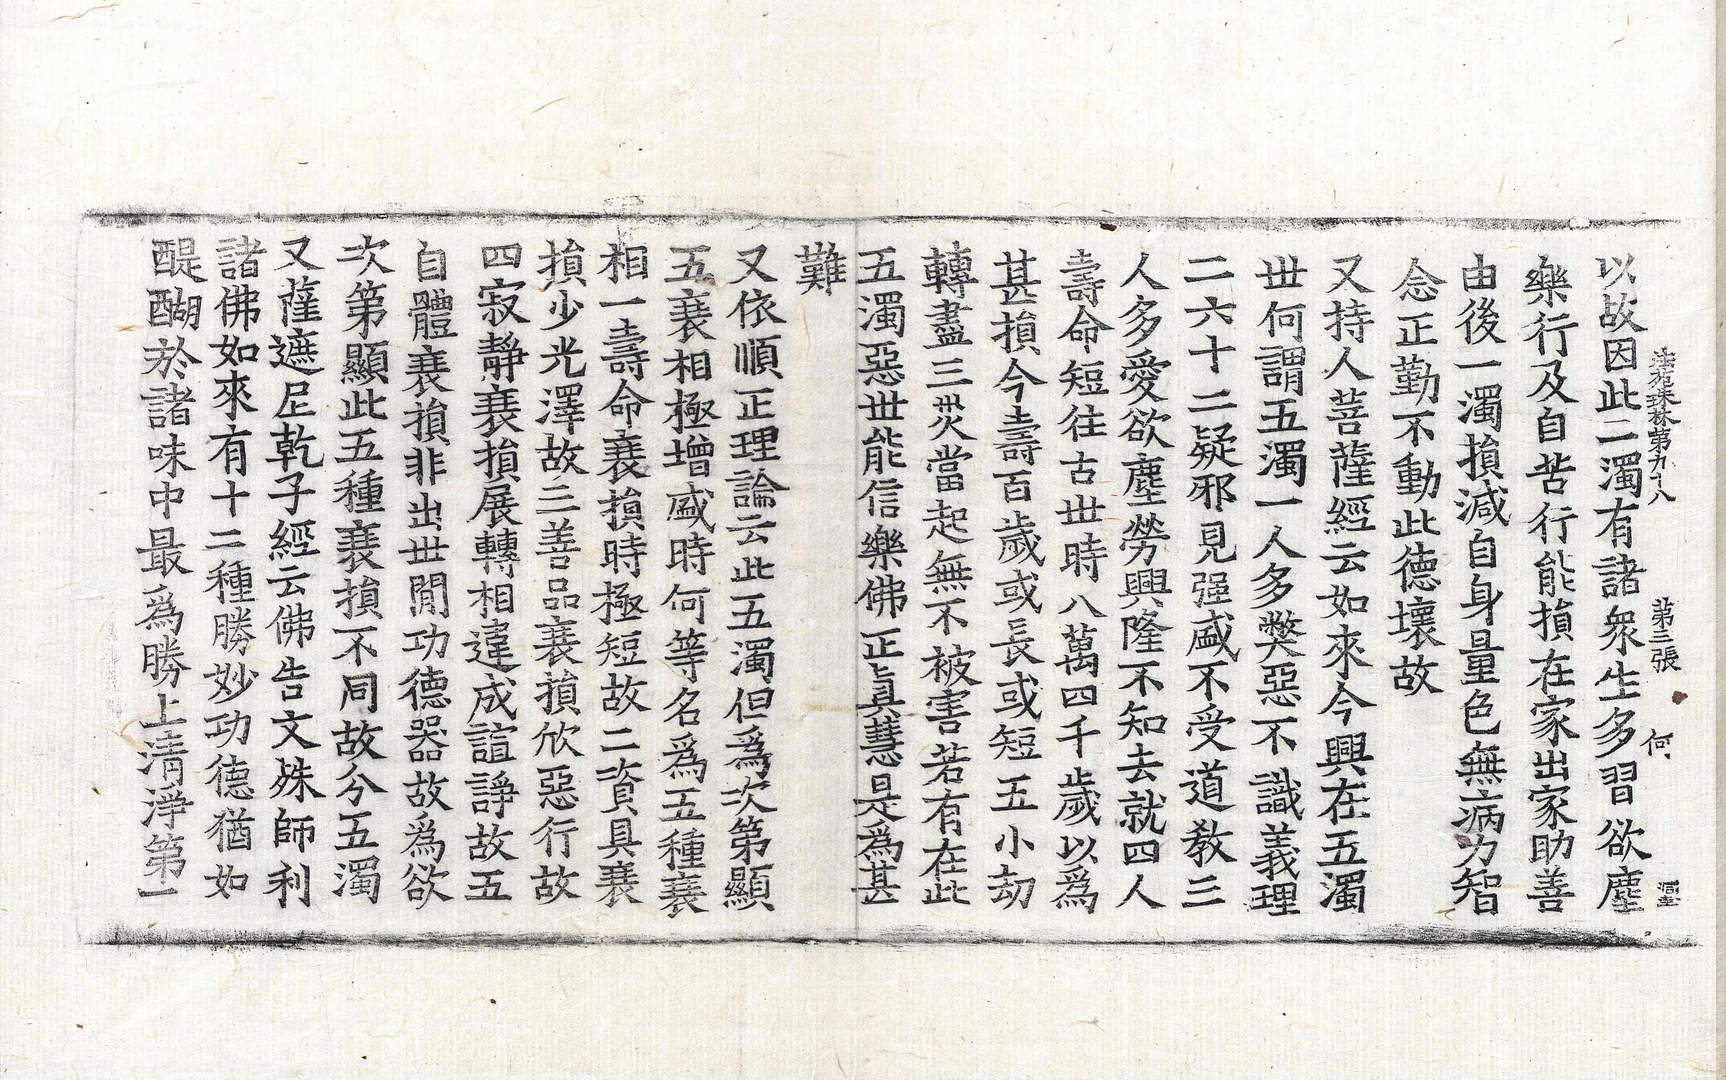 法苑珠林第九十八　第三張　何
以故因此二濁有諸衆生多習欲塵
樂行及自苦行能損在家出家助善
由後一濁損減自身量色無病力智
念正勤不動此德壞故
又持人菩薩經云如來今興在五濁
世何謂五濁一人多弊惡不識義理
二六十二疑邪見强盛不受道教三
人多愛欲塵勞興隆不知去就四人
壽命短往古世時八萬四千歲以為
甚損今壽百歲或長或短五小劫
轉盡三灾當起無不被害若有在此
五濁惡世能信樂佛正真慧是為甚
難
又依順正理論云此五濁但為次第顯
五衰相極增盛時何等名為五種衰
相一壽命衰損時極短故二資具衰
損少光澤故三善品衰損欣惡行故
四寂靜衰損展轉相違成諠諍故五
自體衰損非出世間功德器故為欲
次第顯此五種衰損不同故分五濁
又薩遮尼乾子經云佛告文殊師利
諸佛如來有十二種勝妙功德猶如
醍醐於諸味中最為勝上清淨第一